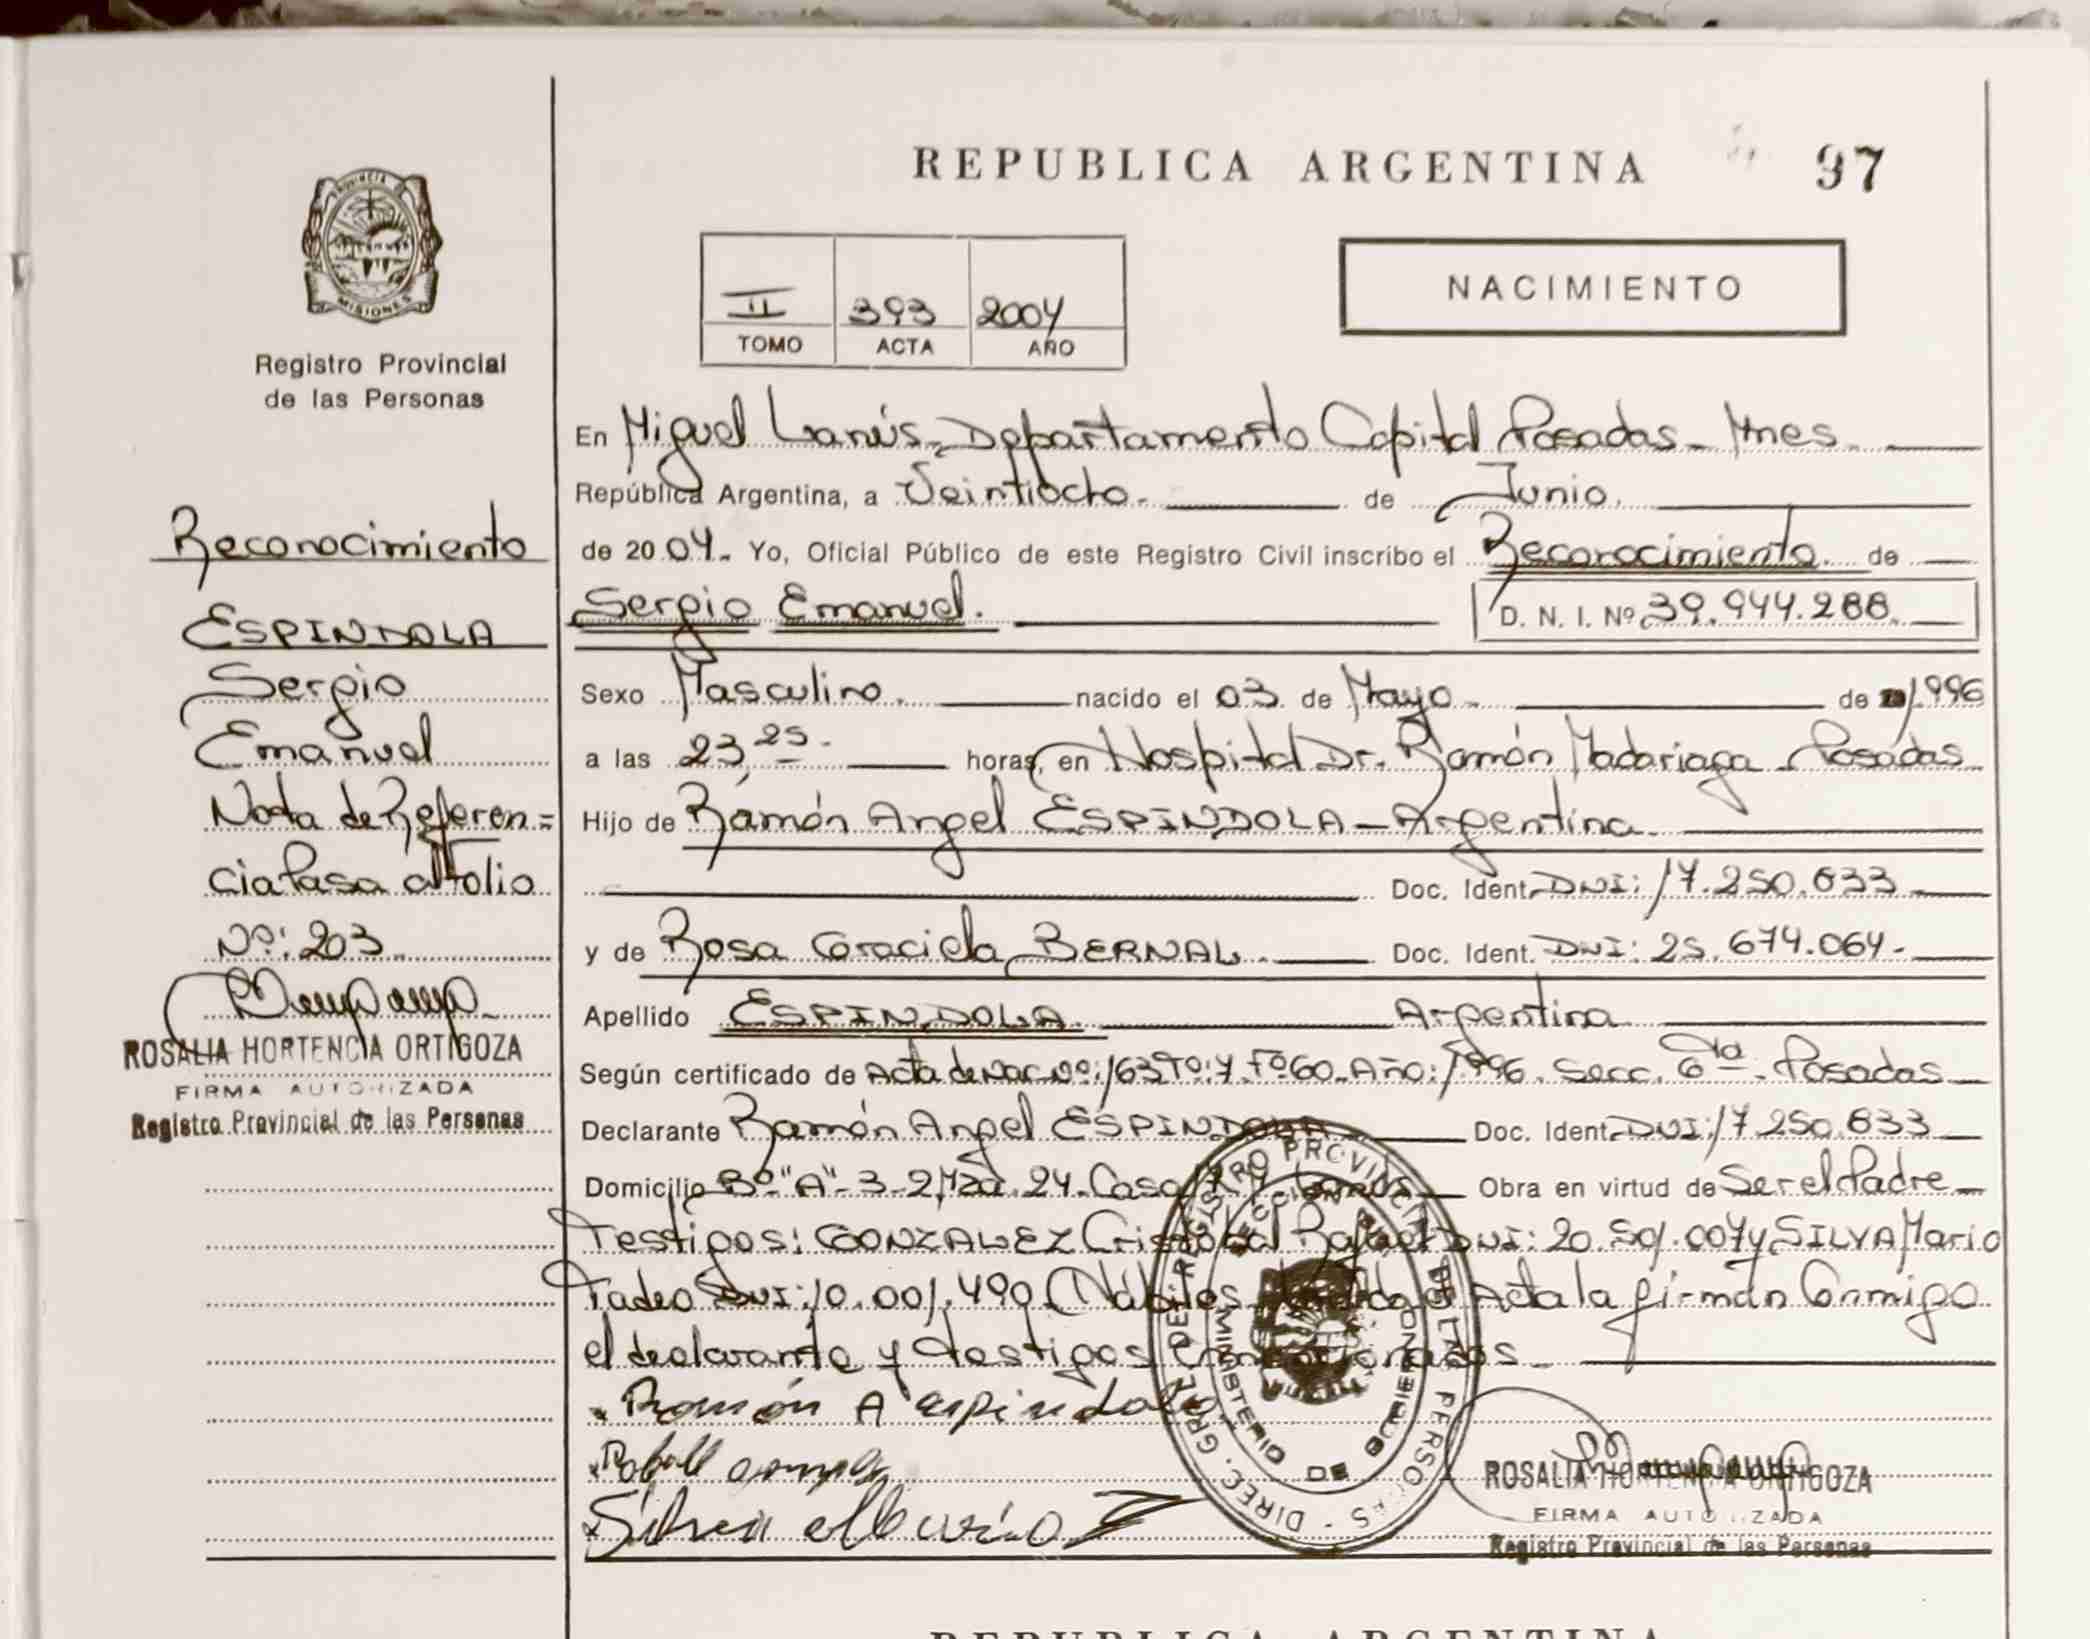 REPUBLICA ARGENTINA
97
PROVINCIA DE
MISIONES
Registro Provincial
de las Personas
II 393 2004
TOMO ACTA AÑO
NACIMIENTO
Reconocimiento
ESPINDOLA
Sergio
Emanuel
Nota de Referen=
cia Pasa al Folio
Nº: 203
ROSALIA HORTENCIA ORTIGOZA
FIRMA AUTORIZADA
Registro Provincial de las Personas
En Miguel Lanús - Departamento Capital Posadas - Mnes.
República Argentina, a Veintiocho. de Junio.
de 2004. Yo, Oficial Público de este Registro Civil inscribo el Reconocimiento. de
Sergio Emanuel. D. N. I. Nº 39.944.288.
Sexo Masculino. nacido el 03 de Mayo de 1996
a las 23,25. horas, en Hospital Dr. Ramón Madariaga - Posadas
Hijo de Ramón Angel ESPINDOLA - Argentina
Doc. Ident. DNI: 17.250.833
y de Rosa Graciela BERNAL. Doc. Ident. DNI: 25.674.064.
Apellido ESPINDOLA Argentina
Según certificado de Acta de Nac. Nº: 163 Tº: Y Fº 60 Año: 1996. Secc. 6ta. Posadas
Declarante Ramón Angel ESPINDOLA Doc. Ident. DNI: 17.250.833
Domicilio Bº "A" 3-2 Mza 24. Casa Obra en virtud de Ser el Padre
Testigos: GONZALEZ Cristobal Rafael DNI: 20.501.007 y SILVA Mario
Tadeo DNI: 10.001.490 Hábiles. Acta la firman Conmigo
el declarante y testigos
Ramón A espindola
DIREC. GRAL. DE REGISTRO PROVINCIAL DE LAS PERSONAS
MINISTERIO DE GOBIERNO
ROSALIA HORTENCIA ORTIGOZA
FIRMA AUTORIZADA
Registro Provincial de las Personas
REPUBLICA ARGENTINA